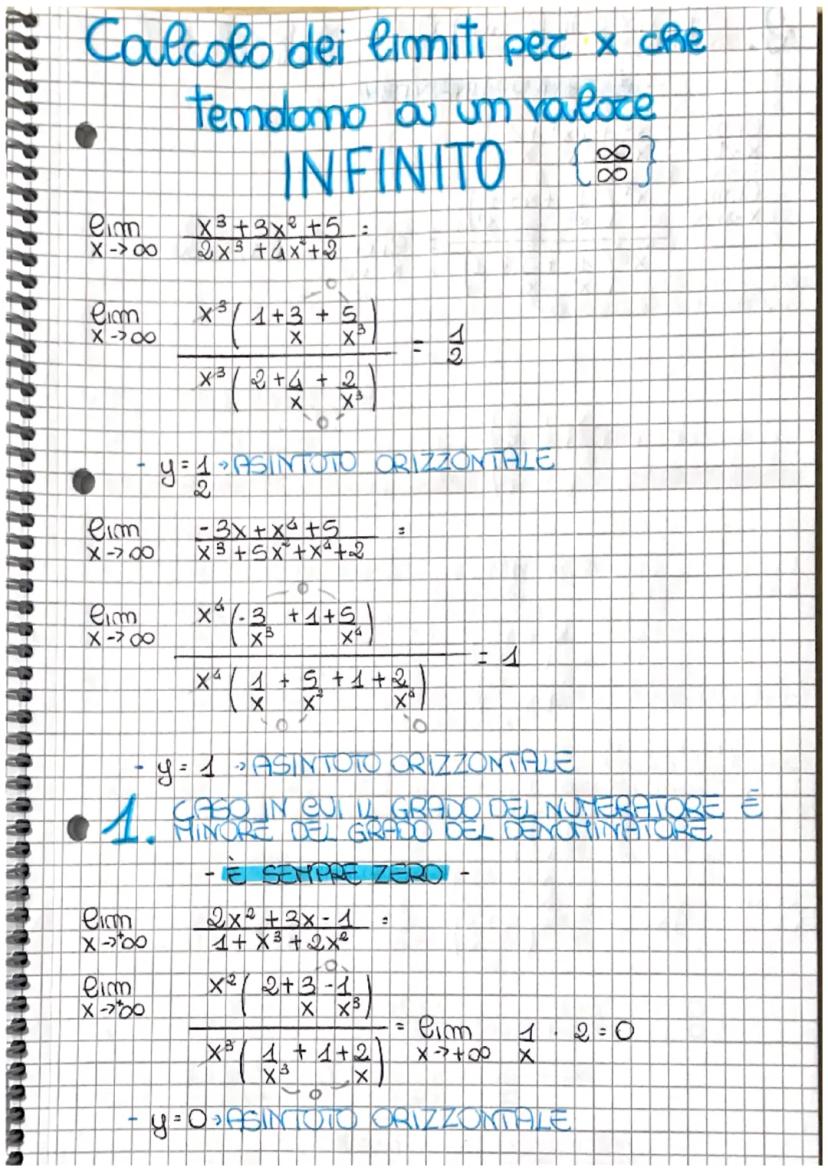 Calcolo dei limiti per x che
tendono a un valore
INFINITO {∞/∞}
lim x->∞ (x³+3x²+5)/(2x³+4x²+2) =
lim x->∞ x³(1+3/x+5/x³) / x³(2+4/x+2/x³) = 1/2
0
0
- y=1/2 → ASINTOTO ORIZZONTALE
lim x->∞ (-3x+x⁴+5)/(x³+5x²+x⁴+2) =
lim x->∞ x⁴(-3/x³+1+5/x⁴) / x⁴(1/x+5/x²+1+2/x⁴) = 1
0
0 0
- y=1 → ASINTOTO ORIZZONTALE
1. CASO IN CUI IL GRADO DEL NUMERATORE È
MINORE DEL GRADO DEL DENOMINATORE
- È SEMPRE ZERO -
lim x->+∞ (2x²+3x-1)/(1+x³+2x²) =
lim x->+∞ x²(2+3/x-1/x³) / x³(1/x³+1+2/x) = lim x->+∞ 1/x · 2=0
0
0
- y=0 → ASINTOTO ORIZZONTALE